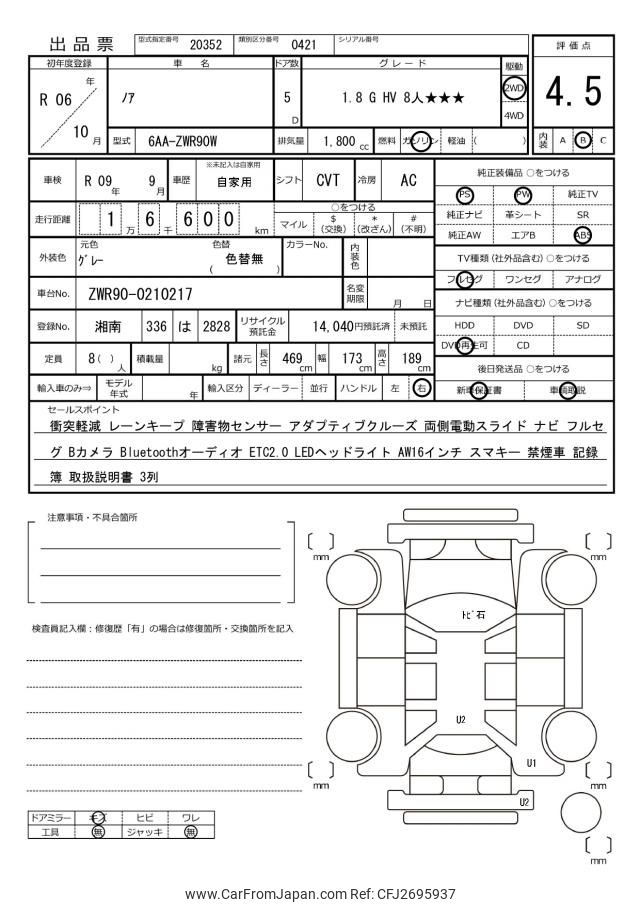 出品票
型式指定番号 20352 類別区分番号 0421 シリアル番号
評価点
4.5
内装 A B C
初年度登録 車名 ドア数 グレード 駆動
R 06 年 10 月
ノア
5 D
1.8 G HV 8人★★★
2WD
4WD
型式 6AA-ZWR90W 排気量 1,800 cc 燃料 ガソリン 軽油 ( )
車検 R 09 年 9 月 車歴 ※未記入は自家用 自家用 シフト CVT 冷房 AC
走行距離 1 万 6 千 6 0 0 km
○をつける
マイル $ (交換) * (改ざん) # (不明)
外装色 元色 グレー 色替 ( 色替無 ) カラーNo. 内装色
車台No. ZWR90-0210217 名変期限 月 日
登録No. 湘南 336 は 2828 リサイクル預託金 14,040円預託済 未預託
定員 8 ( ) 人 積載量 kg 諸元 長さ 469 cm 幅 173 cm 高さ 189 cm
輸入車のみ⇒ モデル年式 年 輸入区分 ディーラー 並行 ハンドル 左 右
純正装備品 ○をつける
PS PW 純正TV
純正ナビ 革シート SR
純正AW エアB ABS
TV種類 (社外品含む) ○をつける
フルセグ ワンセグ アナログ
ナビ種類 (社外品含む) ○をつける
HDD DVD SD
DVD再生可 CD
後日発送品 ○をつける
新車保証書 車輌取説
セールスポイント
衝突軽減 レーンキープ 障害物センサー アダプティブクルーズ 両側電動スライド ナビ フルセ
グ Bカメラ Bluetoothオーディオ ETC2.0 LEDヘッドライト AW16インチ スマキー 禁煙車 記録
簿 取扱説明書 3列
注意事項・不具合箇所
検査員記入欄：修復歴「有」の場合は修復箇所・交換箇所を記入
ドアミラー キズ ヒビ ワレ
工具 無 ジャッキ 無
[ ] mm
[ ] mm
トビ石
U2
U1
[ ] mm
[ ] mm
U2
[ ] mm
www.CarFromJapan.com Ref: CFJ2695937